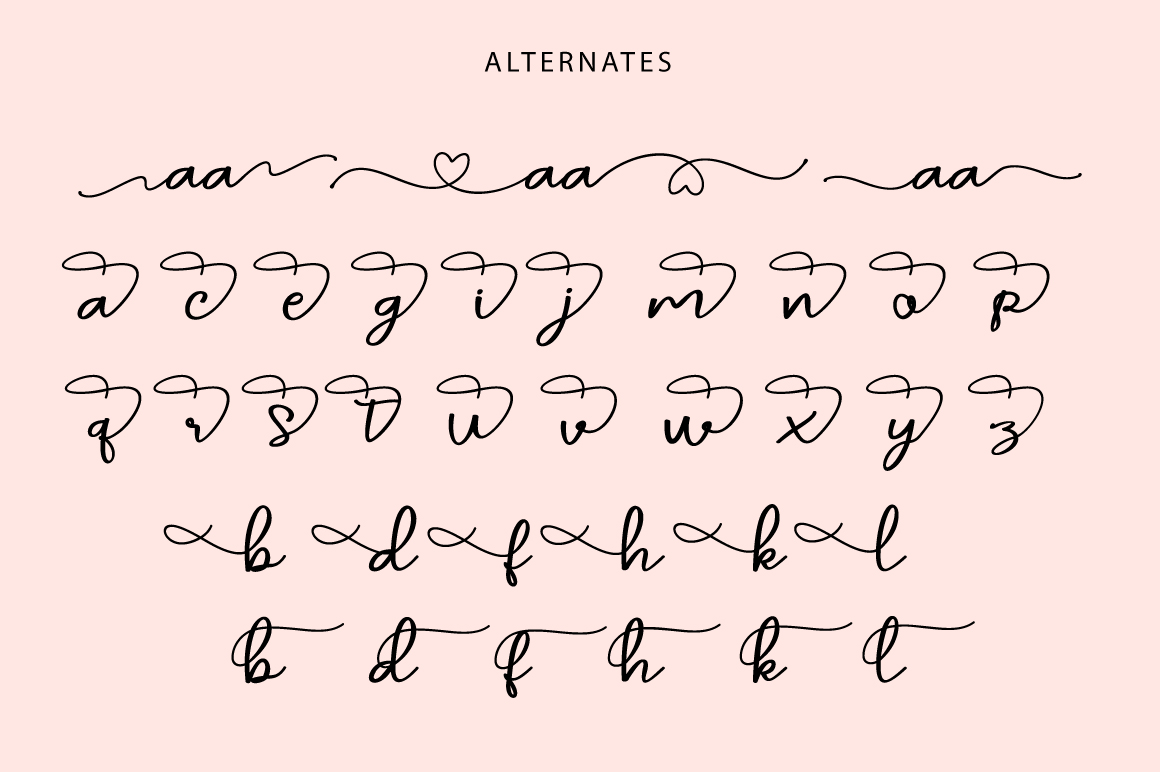 ALTERNATES
aa aa aa
a c e g i j m n o p
q r s t u v w x y z
b d f h k l
b d f h k l